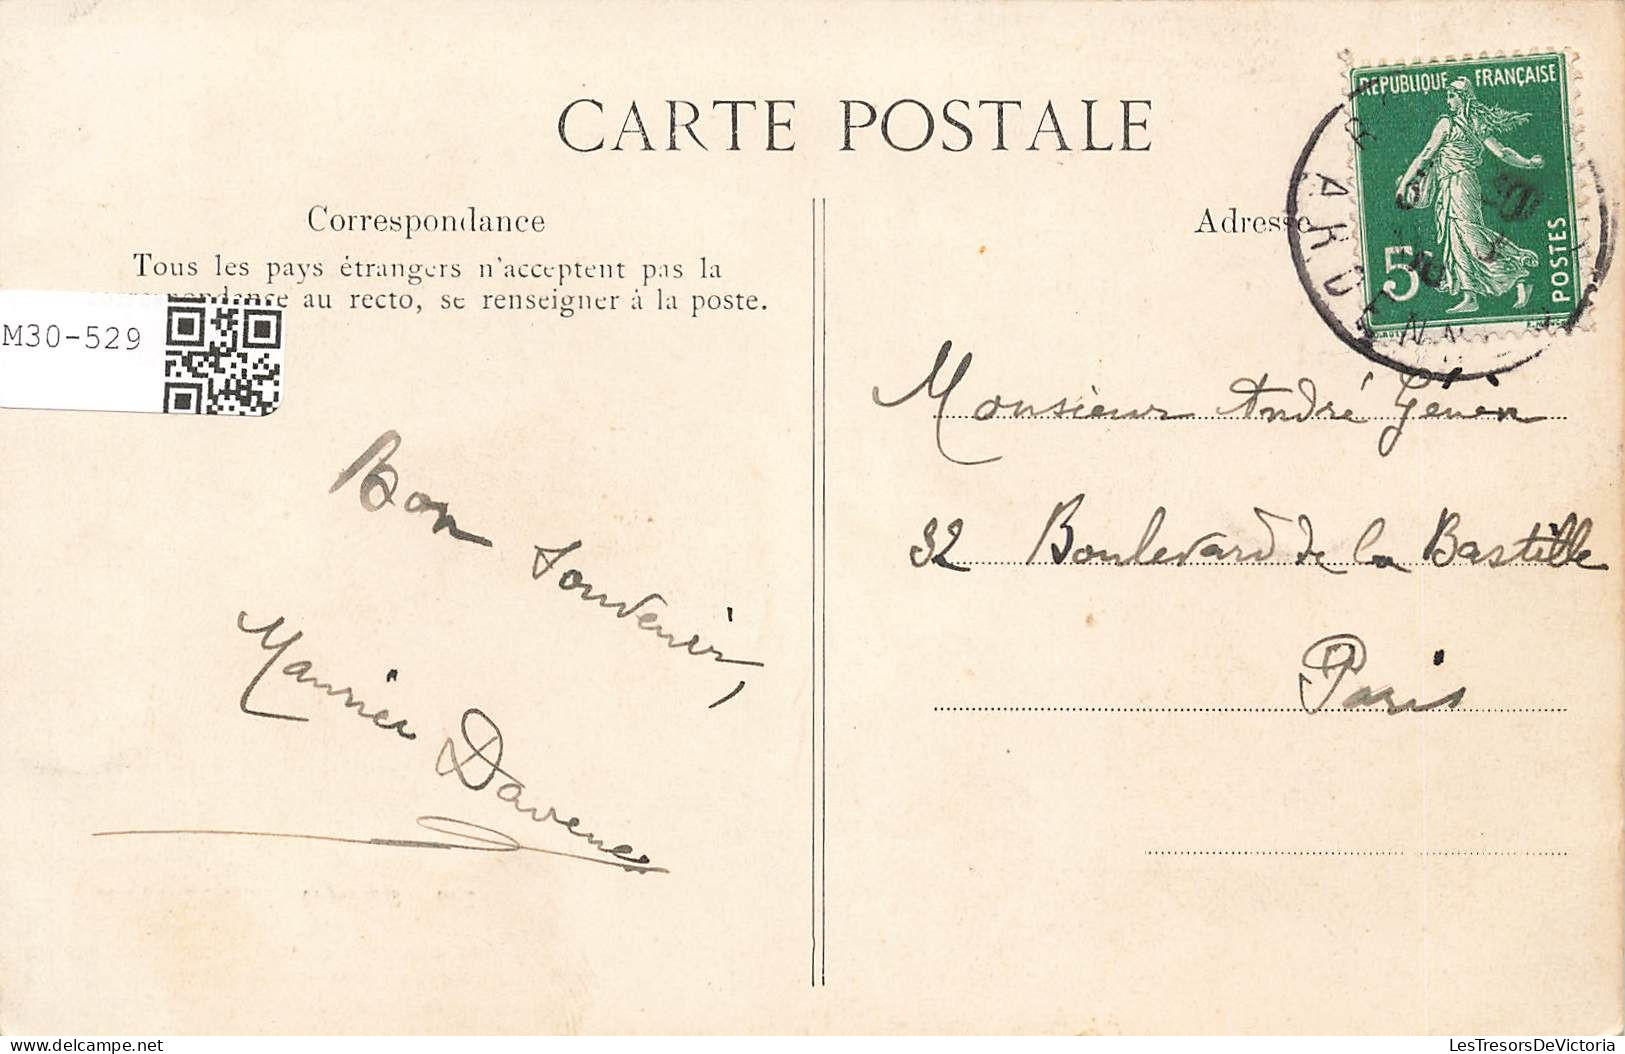 CARTE POSTALE
Correspondance
Tous les pays étrangers n'acceptent pas la
correspondance au recto, se renseigner à la poste.
M30-529
Bon souvenir,
Maurice
Adresse
REPUBLIQUE FRANÇAISE
5
POSTES
ARDENNES
Monsieur André
32 Boulevard de la Bastille
Paris
delcampe.net
LesTresorsDeVictoria